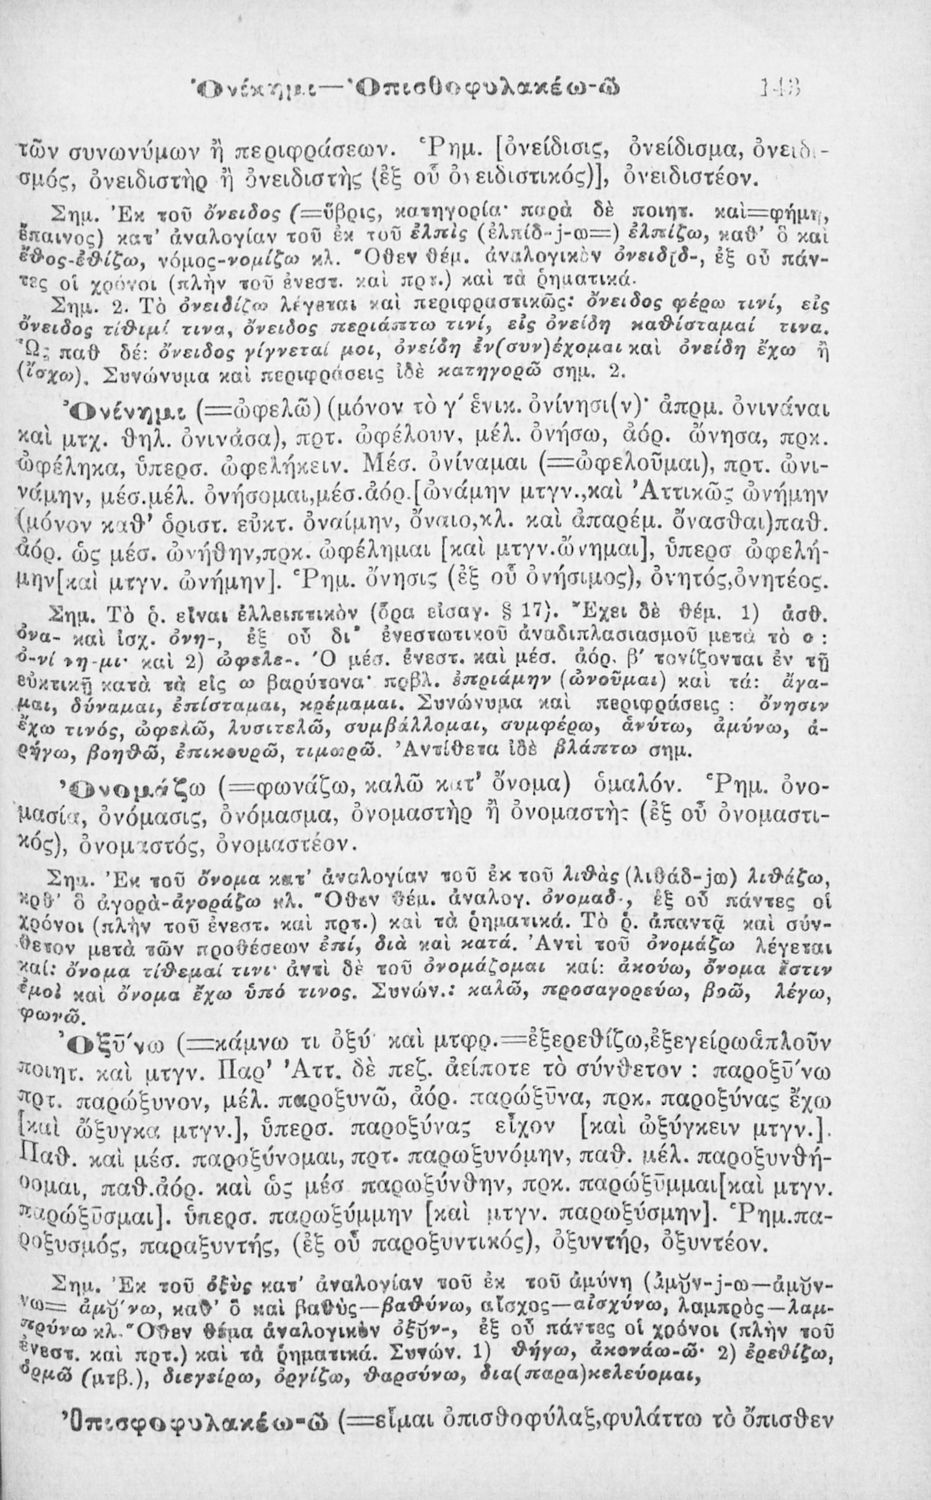 Ὀνέκημι—Ὀπισθοφυλακέω-ῶ 143
τῶν συνωνύμων ἢ περιφράσεων. Ῥημ. [ὀνείδισις, ὀνείδισμα, ὀνειδι-
σμός, ὀνειδιστὴρ ἢ ὀνειδιστὴς (ἐξ οὗ ὀνειδιστικός)], ὀνειδιστέον.
Σημ. Ἐκ τοῦ ὄνειδος (=ὕβρις, κατηγορία· παρὰ δὲ ποιητ. καὶ=φήμη,
ἔπαινος) κατ' ἀναλογίαν τοῦ ἐκ τοῦ ἐλπὶς (ἐλπίδ-j-ω=) ἐλπίζω, καθ' ὃ καὶ
ἔθος-ἐθίζω, νόμος-νομίζω κλ. Ὅθεν θέμ. ἀναλογικὸν ὀνειδῐδ-, ἐξ οὗ πάν-
τες οἱ χρόνοι (πλὴν τοῦ ἐνεστ. καὶ πρτ.) καὶ τὰ ῥηματικά.
Σημ. 2. Τὸ ὀνειδίζω λέγεται καὶ περιφραστικῶς: ὄνειδος φέρω τινί, εἰς
ὄνειδος τίθημί τινα, ὄνειδος περιάπτω τινί, εἰς ὀνείδη καθίσταμαί τινα.
Ὡς παθ δέ: ὄνειδος γίγνεταί μοι, ὀνείδη ἐν(συν)έχομαι καὶ ὀνείδη ἔχω ἢ
(ἴσχω). Συνώνυμα καὶ περιφράσεις ἰδὲ κατηγορῶ σημ. 2.
Ὀνίνημι (=ὠφελῶ) (μόνον τὸ γ' ἑνικ. ὀνίνησι(ν)· ἀπρμ. ὀνινάναι
καὶ μτχ. θηλ. ὀνινᾶσα), πρτ. ὠφέλουν, μέλ. ὀνήσω, ἀόρ. ὤνησα, πρκ.
ὠφέληκα, ὑπερσ. ὠφελήκειν. Μέσ. ὀνίναμαι (=ὠφελοῦμαι), πρτ. ὠνι-
νάμην, μέσ.μέλ. ὀνήσομαι,μέσ.ἀόρ.[ὠνάμην μτγν.,καὶ Ἀττικῶς ὠνήμην
(μόνον καθ' ὁριστ. εὐκτ. ὀναίμην, ὄναιο,κλ. καὶ ἀπαρέμ. ὄνασθαι)παθ.
ἀόρ. ὡς μέσ. ὠνήθην,πρκ. ὠφέλημαι [καὶ μτγν.ὤνημαι], ὑπερσ ὠφελή-
μην[καὶ μτγν. ὠνήμην]. Ῥημ. ὄνησις (ἐξ οὗ ὀνήσιμος), ὀνητός,ὀνητέος.
Σημ. Τὸ ῥ. εἶναι ἐλλειπτικὸν (ὅρα εἰσαγ. § 17). Ἔχει δὲ θέμ. 1) ἀσθ.
ὀνα- καὶ ἰσχ. ὀνη-, ἐξ οὗ δι' ἐνεστωτικοῦ ἀναδιπλασιασμοῦ μετὰ τὸ ο :
ὀ-νί νη-μι· καὶ 2) ὠφελε-. Ὁ μέσ. ἐνεστ. καὶ μέσ. ἀόρ. β' τονίζονται ἐν τῇ
εὐκτικῇ κατὰ τὰ εἰς ω βαρύτονα· πρβλ. ἐπριάμην (ὠνοῦμαι) καὶ τά: ἄγα-
μαι, δύναμαι, ἐπίσταμαι, κρέμαμαι. Συνώνυμα καὶ περιφράσεις : ὄνησιν
ἔχω τινός, ὠφελῶ, λυσιτελῶ, συμβάλλομαι, συμφέρω, ἀνύτω, ἀμύνω, ἀ-
ρήγω, βοηθῶ, ἐπικουρῶ, τιμωρῶ. Ἀντίθετα ἰδὲ βλάπτω σημ.
Ὀνομάζω (=φωνάζω, καλῶ κατ' ὄνομα) ὁμαλόν. Ῥημ. ὀνο-
μασία, ὀνόμασις, ὀνόμασμα, ὀνομαστὴρ ἢ ὀνομαστὴς (ἐξ οὗ ὀνομαστι-
κός), ὀνομαστός, ὀνομαστέον.
Σημ. Ἐκ τοῦ ὄνομα κατ' ἀναλογίαν τοῦ ἐκ τοῦ λιθὰς (λιθάδ-jω) λιθάζω,
καθ' ὃ ἀγορὰ-ἀγοράζω κλ. Ὅθεν θέμ. ἀναλογ. ὀνομαδ-, ἐξ οὗ πάντες οἱ
χρόνοι (πλὴν τοῦ ἐνεστ. καὶ πρτ.) καὶ τὰ ῥηματικά. Τὸ ῥ. ἀπαντᾷ καὶ σύν-
θετον μετὰ τῶν προθέσεων ἐπί, διὰ καὶ κατά. Ἀντὶ τοῦ ὀνομάζω λέγεται
καί: ὄνομα τίθεμαί τινι· ἀντὶ δὲ τοῦ ὀνομάζομαι καί: ἀκούω, ὄνομα ἔστιν
ἐμοὶ καὶ ὄνομα ἔχω ὑπό τινος. Συνών.: καλῶ, προσαγορεύω, βοῶ, λέγω,
φωνῶ.
Ὀξῡ́νω (=κάμνω τι ὀξύ· καὶ μτφρ.=ἐξερεθίζω,ἐξεγείρωἁπλοῦν
ποιητ. καὶ μτγν. Παρ' Ἀττ. δὲ πεζ. ἀείποτε τὸ σύνθετον : παροξῡ́νω
πρτ. παρώξυνον, μέλ. παροξυνῶ, ἀόρ. παρώξῡνα, πρκ. παροξύνας ἔχω
[καὶ ὤξυγκα μτγν.], ὑπερσ. παροξύνας εἶχον [καὶ ὠξύγκειν μτγν.].
Παθ. καὶ μέσ. παροξύνομαι, πρτ. παρωξυνόμην, παθ. μέλ. παροξυνθή-
σομαι, παθ.ἀόρ. καὶ ὡς μέσ παρωξύνθην, πρκ. παρώξῡμμαι[καὶ μτγν.
παρώξῡσμαι]. ὑπερσ. παρωξύμμην [καὶ μτγν. παρωξύσμην]. Ῥημ.πα-
ροξυσμός, παραξυντής, (ἐξ οὗ παροξυντικός), ὀξυντήρ, ὀξυντέον.
Σημ. Ἐκ τοῦ ὀξὺς κατ' ἀναλογίαν τοῦ ἐκ τοῦ ἀμύνη (ἀμῠν-j-ω—ἀμῠν-
νω= ἀμῡ́νω, καθ' ὃ καὶ βαθὺς—βαθύνω, αἶσχος—αἰσχύνω, λαμπρὸς—λαμ-
πρύνω κλ. Ὅθεν θέμα ἀναλογικὸν ὀξῠν-, ἐξ οὗ πάντες οἱ χρόνοι (πλὴν τοῦ
ἐνεστ. καὶ πρτ.) καὶ τὰ ῥηματικά. Συνών. 1) θήγω, ἀκονάω-ῶ· 2) ἐρεθίζω,
ὁρμῶ (μτβ.), διεγείρω, ὀργίζω, θαρσύνω, δια(παρα)κελεύομαι,
Ὀπισφοφυλακέω-ῶ (=εἶμαι ὀπισθοφύλαξ,φυλάττω τὸ ὄπισθεν